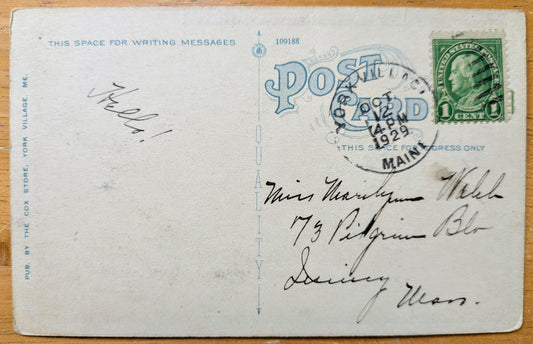 THIS SPACE FOR WRITING MESSAGES
109188
POST CARD
THIS SPACE FOR ADDRESS ONLY
PUB. BY THE COX STORE, YORK VILLAGE, ME.
QUALITY
Hello!
YORK VILLAGE
OCT
12
4 PM
1929
MAINE
UNITED STATES POSTAGE
1 CENT 1
Miss Marilynn Webb
73 Pilgrim Blv
Quincy
Mass.